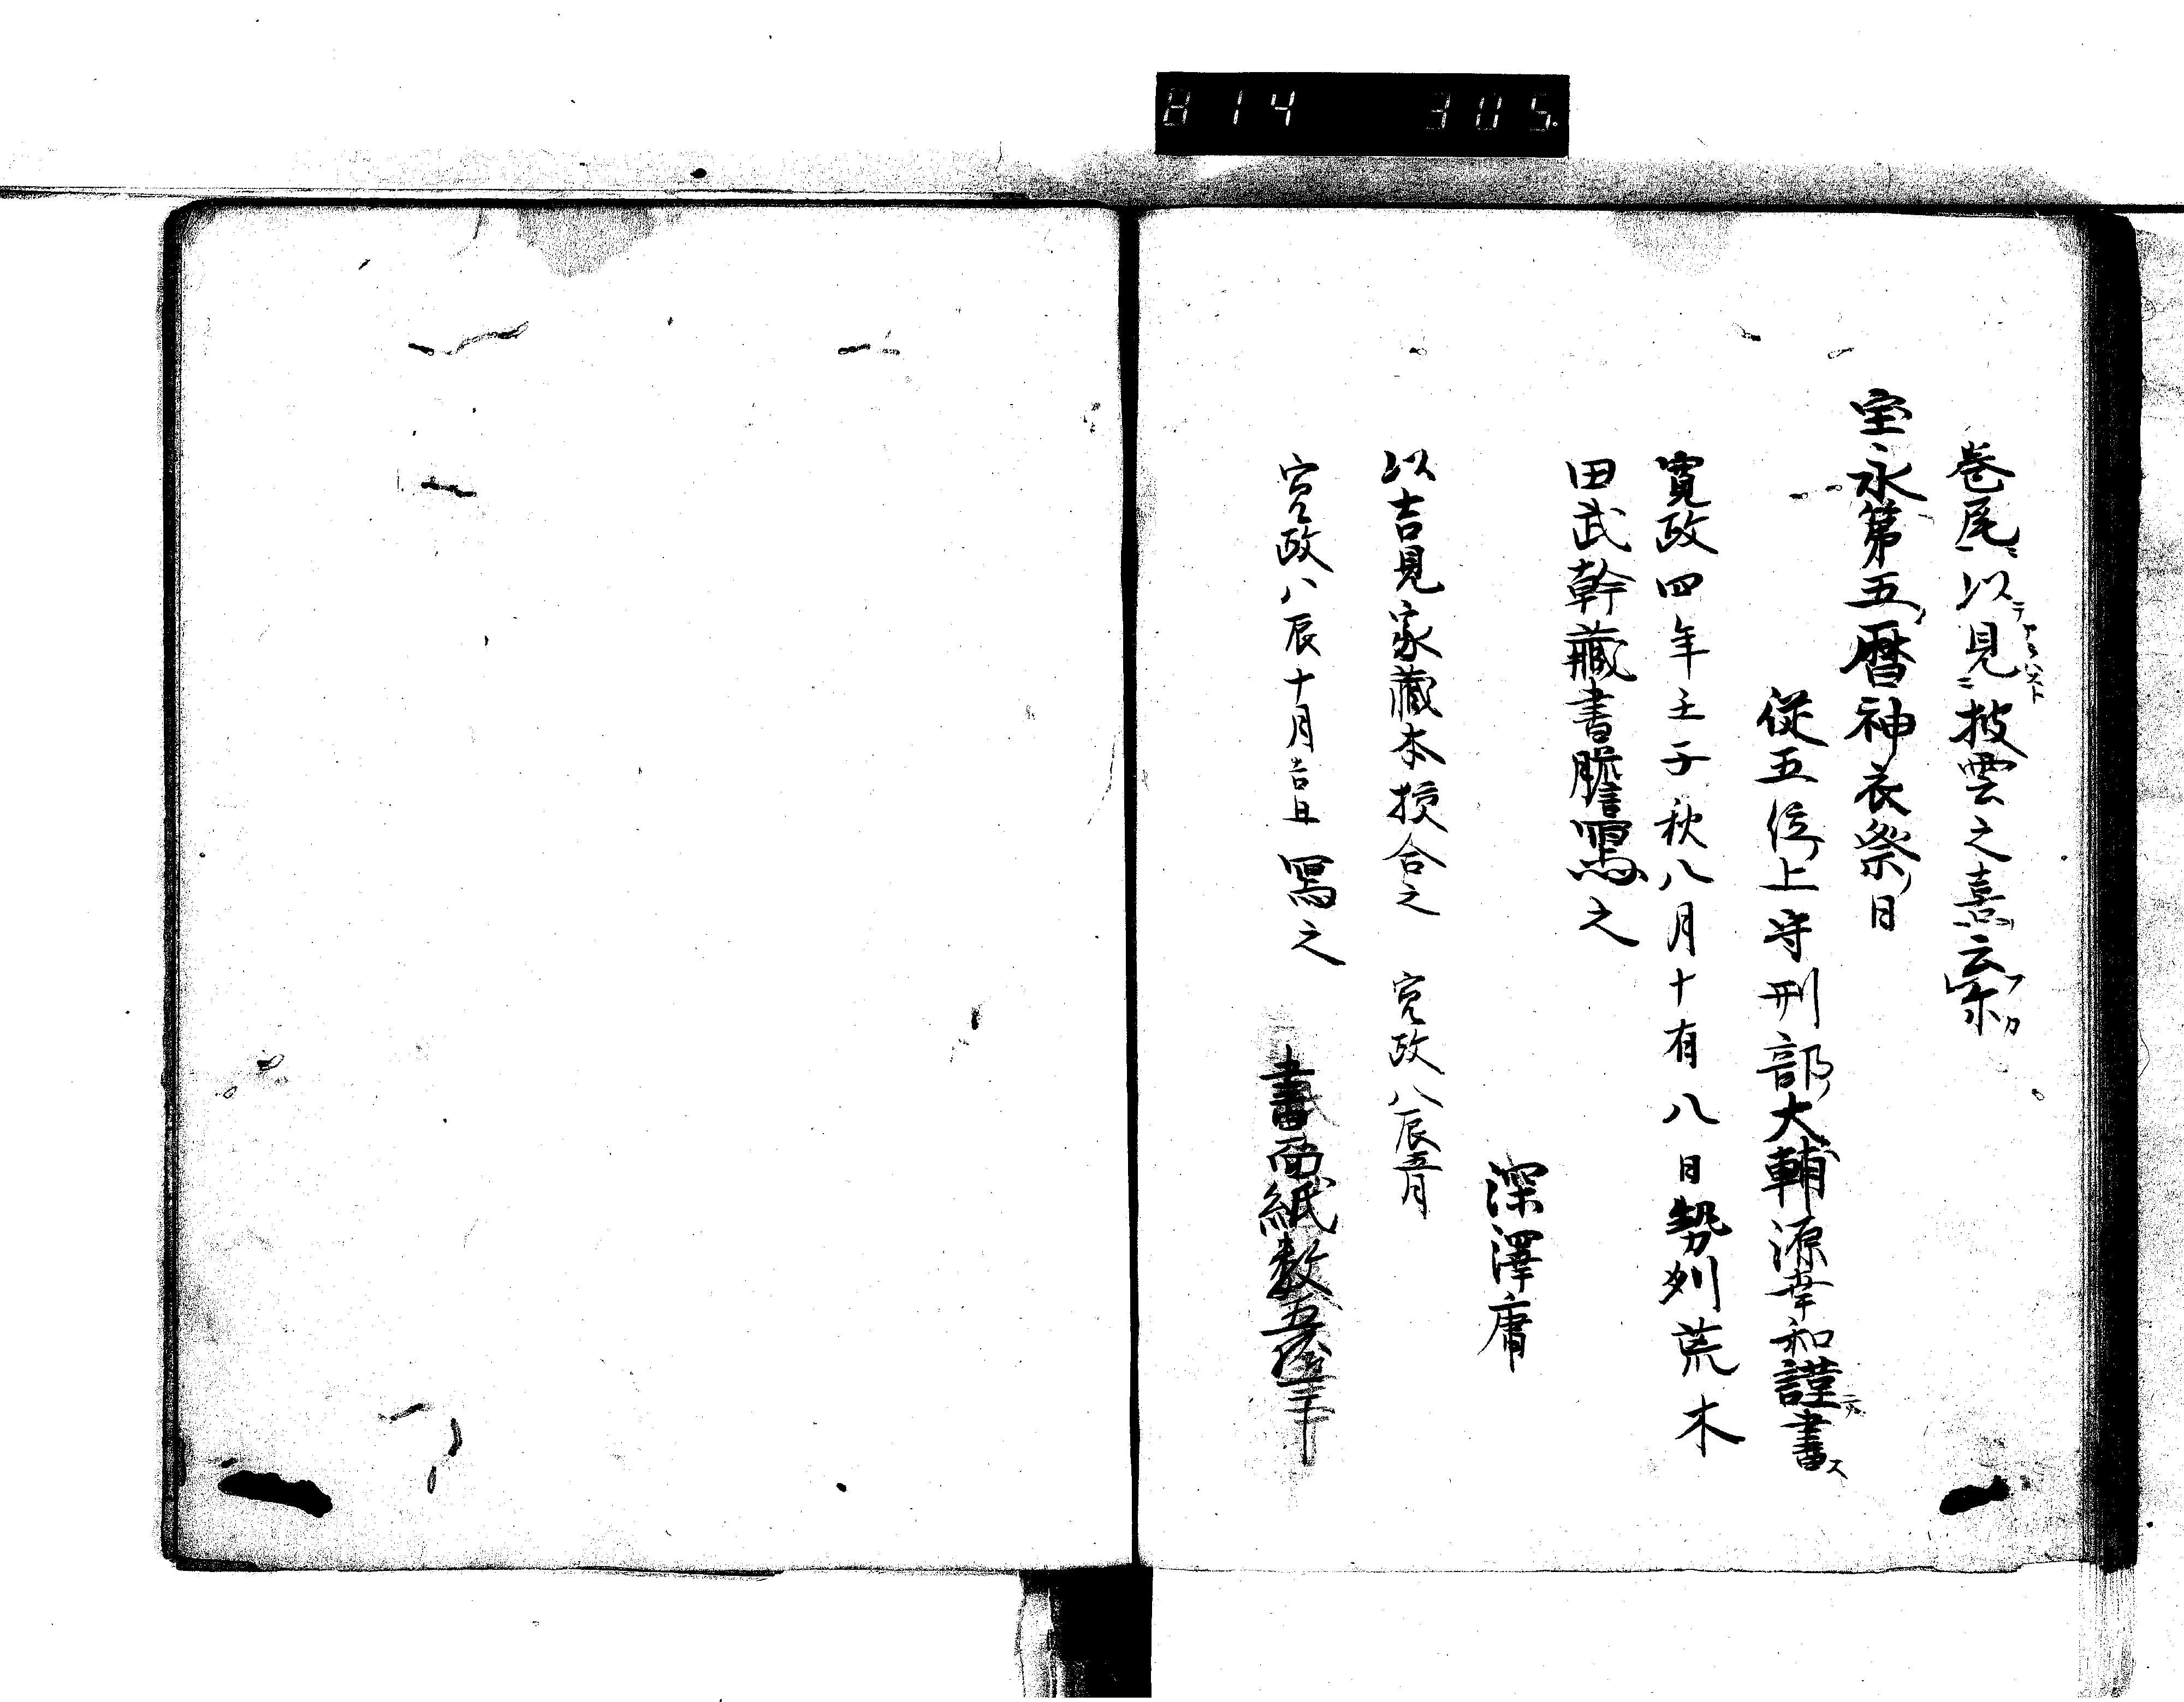 814 305.
巻尾ニ以テ見ニ披雲之憙云宗
宝永第五ノ暦神衣祭ノ日
従五位上守刑部大輔源幸和謹書ス
寛政四年壬子秋八月十有八日勢州荒木
田武幹蔵書謄寫之
深澤庸
以吉見家蔵本挍合之 寛政八辰五月
寛政八辰十月吉日寫之
書面紙数五拾